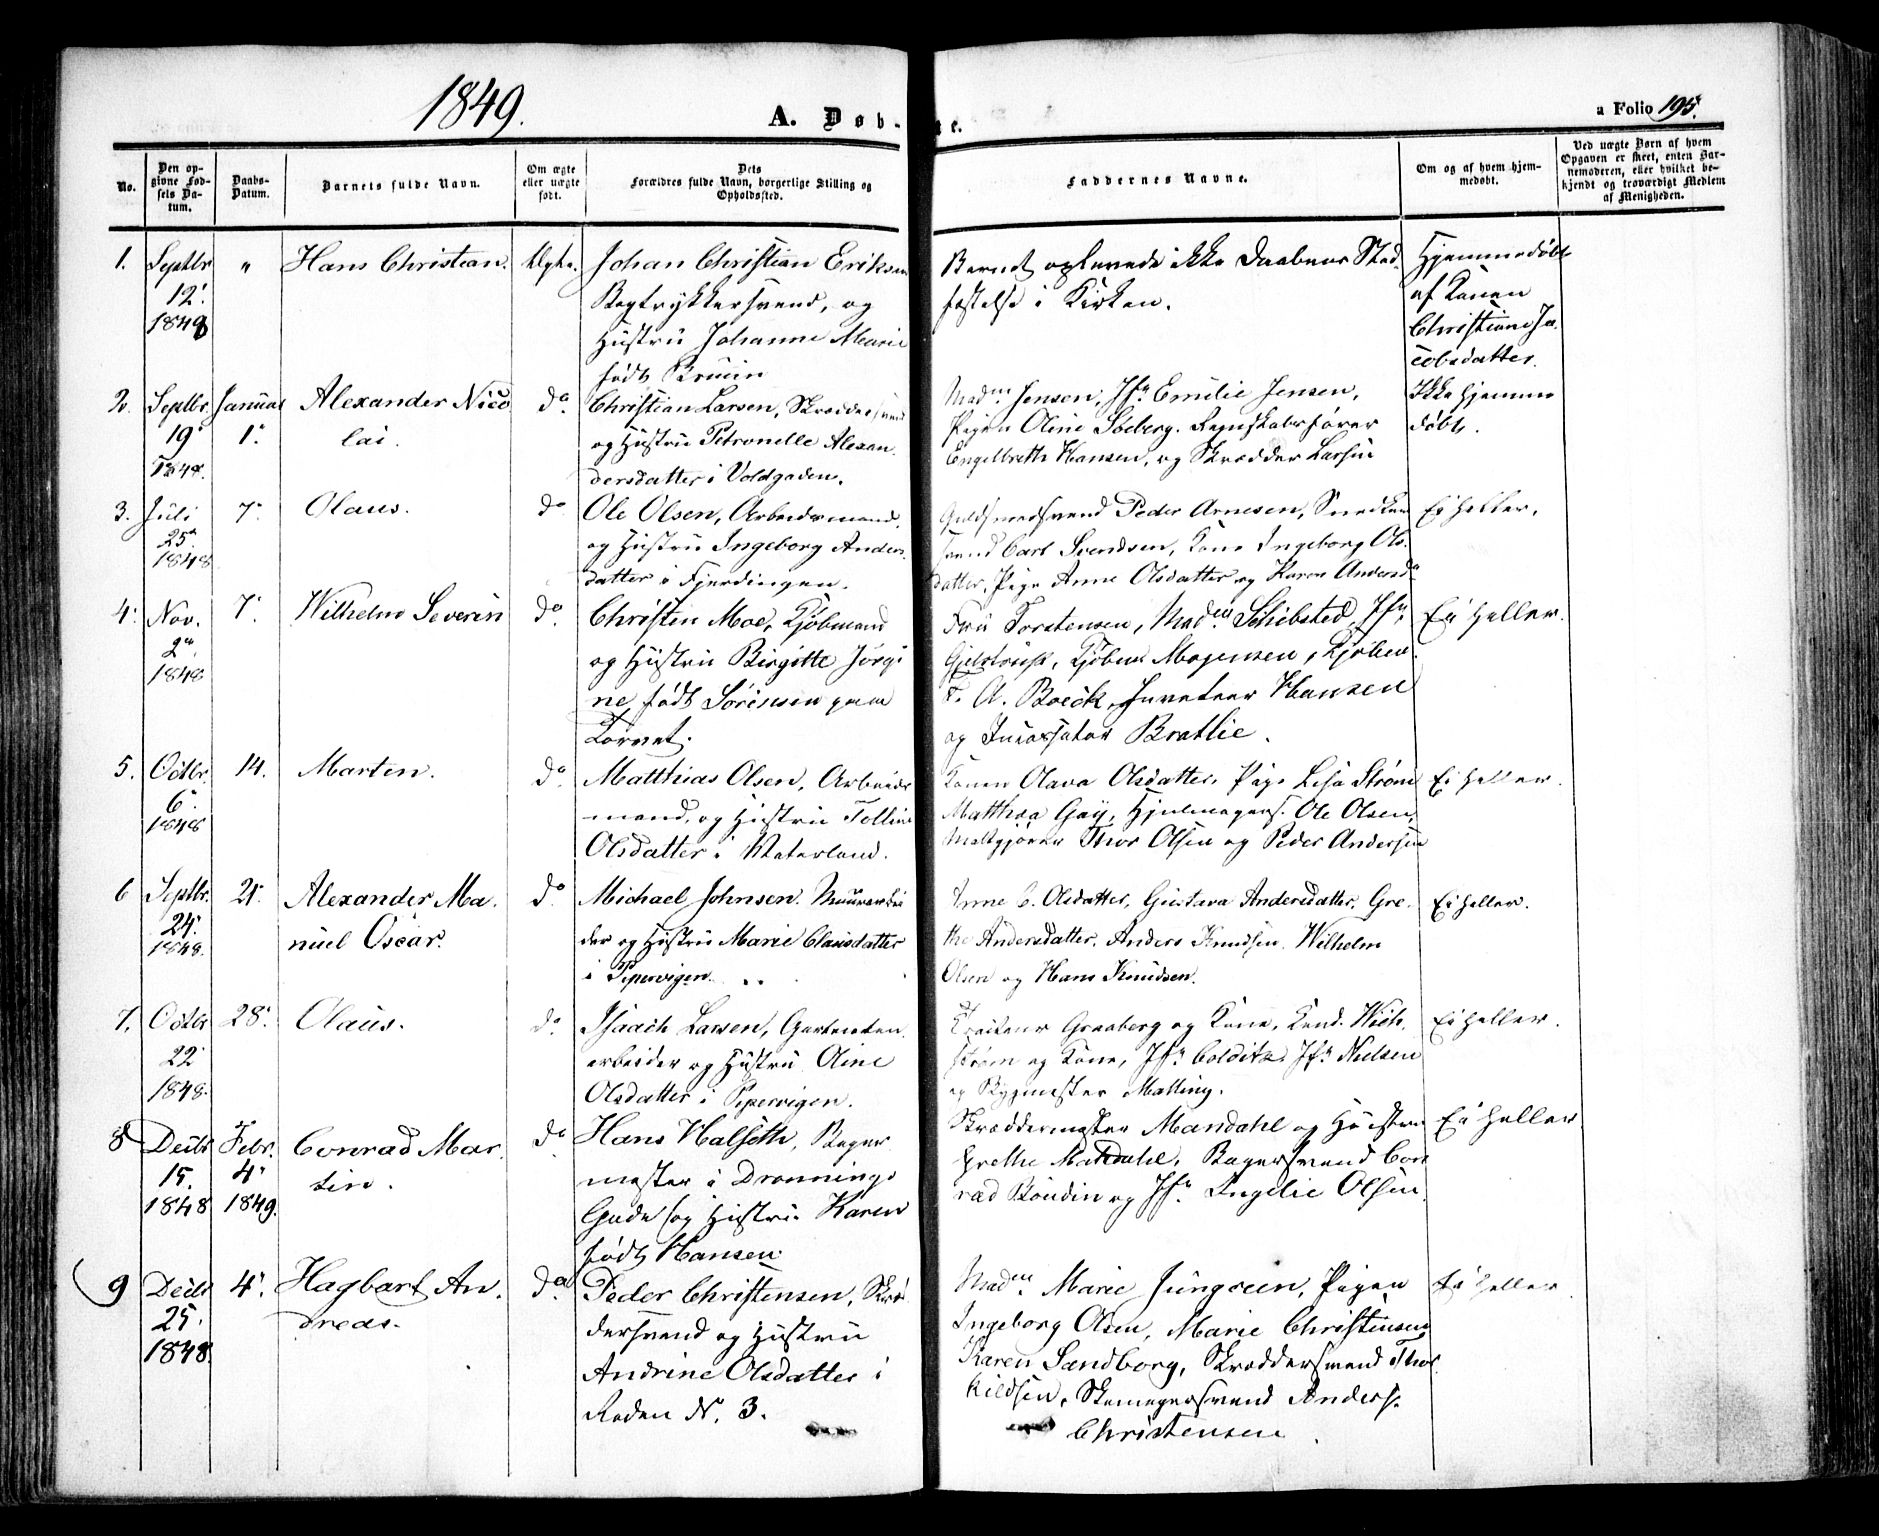 1849.
A. Døbte.
a Folio 195.
No.
Den opgivne Fødsels Datum.
Daabs-Datum.
Barnets fulde Navn.
Om ægte eller uægte født.
Dets Forældres fulde Navn, borgerlige Stilling og Opholdssted.
Faddernes Navne.
Om og af hvem hjemmedøbt.
Ved uægte Børn af hvem Opgaven er skeet, enten Barnemoderen, eller hvilket bekjendt og troværdigt Medlem af Menigheden.
1. Septbr 12. 1848
"
Hans Christian.
Ægte.
Johan Christian Eriksen
Bogtrykkersvend, og
Hustru Johanne Marie
født Bruun
Barnet oplevede ikke Daabens Stad-
fæstelse i Kirken.
Hjemmedøbt
af Konen
Christiane Ja-
cobsdatter.
2. Septbr. 19. 1848.
Januar 1.
Alexander Nico
lai.
do.
Christian Larsen, Skræddersvend
og Hustru Petronelle Alexan-
dersdatter i Voldgaden.
Madm. Jensen, Jfr. Emilie Jensen,
Pigen Oline Søeberg. Regnskabsfører
Engelbreth Hansen, og Skrædder Larsen
Ikke hjemme
døbt.
3. Juli 25 1848
7.
Olaus.
do
Ole Olsen, Arbeidsmand,
og Hustru Ingeborg Anders-
datter i Fjerdingen.
Guldsmedsvend Peder Arnesen, Snedker
svend Carl Svendsen, Kone Ingeborg Ols-
datter, Pige Anne Olsdatter og Karen Andersdr
Ei heller.
4. Nov. 2 1848
7.
Wilhelm Severin
do.
Christen Moe, Kjøbmand
og Hustru Birgitte Jørgi-
ne, født Sörensen paa
Torvet.
Fru Torstensen, Madm. Schibsted, Jfr.
Kjøbm. Mogensen, Kjøbm.
F. A. Boeck, Hansen
og Bratlie.
Ei heller.
5. Octbr. 6. 1848
14.
Marten.
do
Matthias Olsen, Arbeids
mand, og Hustru Telline
Olsdatter i Vaterland.
Konen Olava Olsdatter, Pige Lisa Strøm
Matthea Gay, Hjulmagers. Ole Olsen,
Maltgjører Thor Olsen og Peder Andersen
Ei heller.
6 Septbr. 24. 1848.
21.
Alexander Ma-
nuel Oscar.
do.
Michael Johnsen. Muurarbei
der og Hustru Marie Clausdatter
i Pipervigen.
Anne C. Olsdatter, Gustava Andersdatter, Gre-
the Andersdatter. Anders Knudsen. Wilhelm
Olsen og Hans Knudsen.
Ei heller.
7. Octbr 22 1848.
28.
Olaus.
do.
Isaach Larsen,
arbeider og Hustru Oline
Olsdatter i Pipervigen.
Graaberg og Kone, Cand. Wich-
strøm og Kone, Jfr. Colditz, Jfr. Nielsen
og Bygmester Malling.
Ei heller.
8 Decbr 15. 1848
Febr. 4. 1849.
Conrad Mar-
tin.
do.
Hans Halseth, Bager
mester i Dronnings
Gade og Hustru Karen
født Hansen.
Skræddermester Mandahl og Hustru
Grethe Mandahl, Bagersvend Con
rad Boudin og Jfr. Ingelie Olsen.
Ei heller
9 Decbr 25. 1848
4.
Hagbart An-
dreas.
do.
Peder Christensen, Skræ
dersvend og Hustru
Andrine Olsdatter i
Roden Nr. 3.
Madm. Marie Jungreen, Pigen
Ingeborg Olsen, Marie Christensen,
Karen Sandborg, Skræddersvend Thor
kildsen, Skomagersvend Anders
Christensen.
Ei heller.